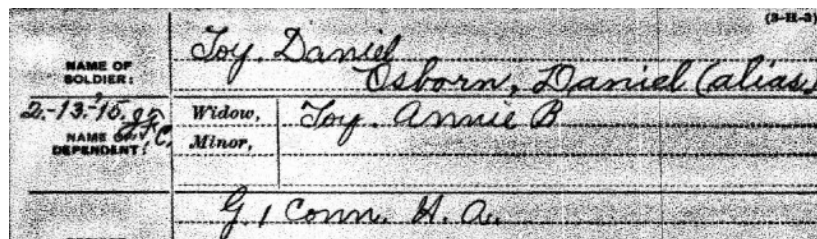 (3-H-3)
NAME OF SOLDIER:
Toy, Daniel
Osborn, Daniel (alias)
2-13-'15.
NAME DEPENDENT:
Widow, Toy. Annie B
Minor,
G, 1 Conn. H. A.